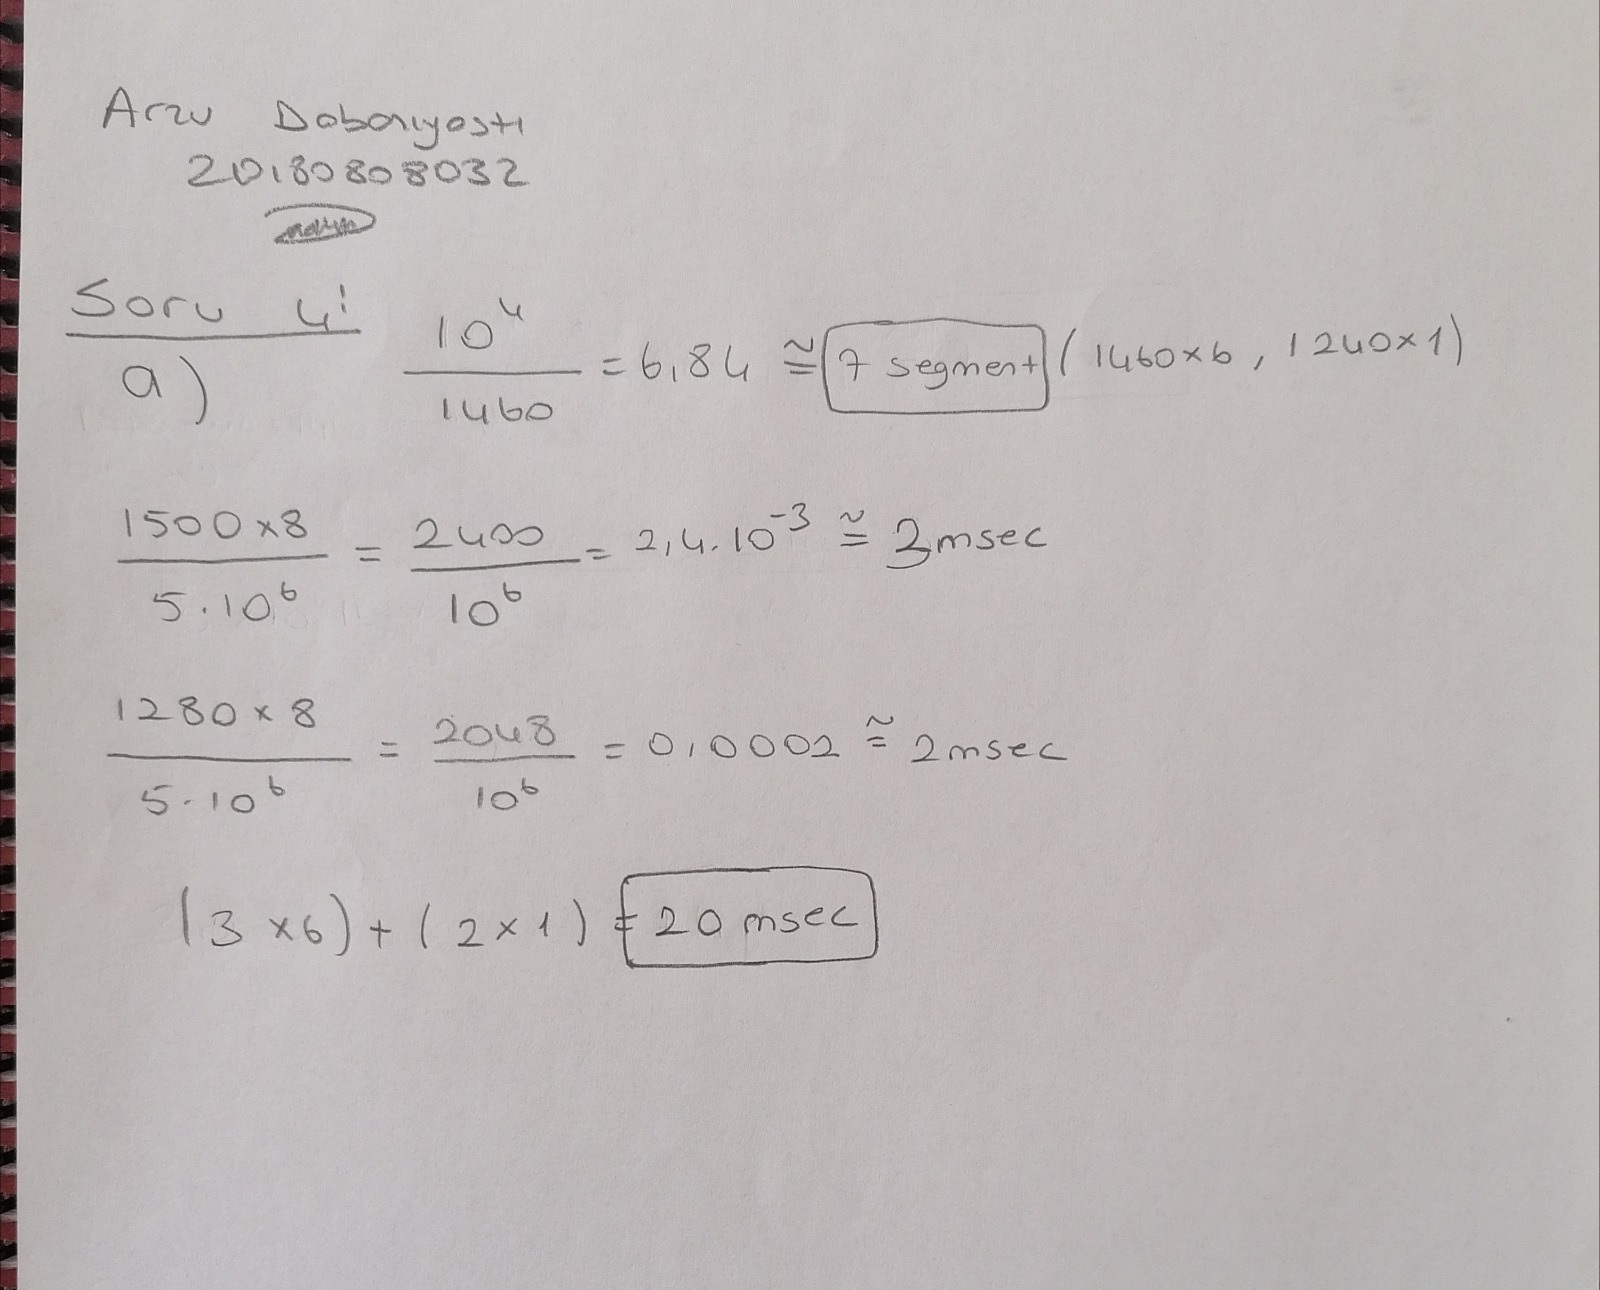 Arzu Dabanıyastı
20180808032
Soru 4:
a) 10⁴ / 1460 = 6,84 ≅ 7 segment (1460x6, 1240x1)
1500x8 / 5.10⁶ = 2400 / 10⁶ = 2,4.10⁻³ ≅ 3msec
1280x8 / 5.10⁶ = 2048 / 10⁶ = 0,0002 ≅ 2msec
(3x6)+(2x1) = 20 msec